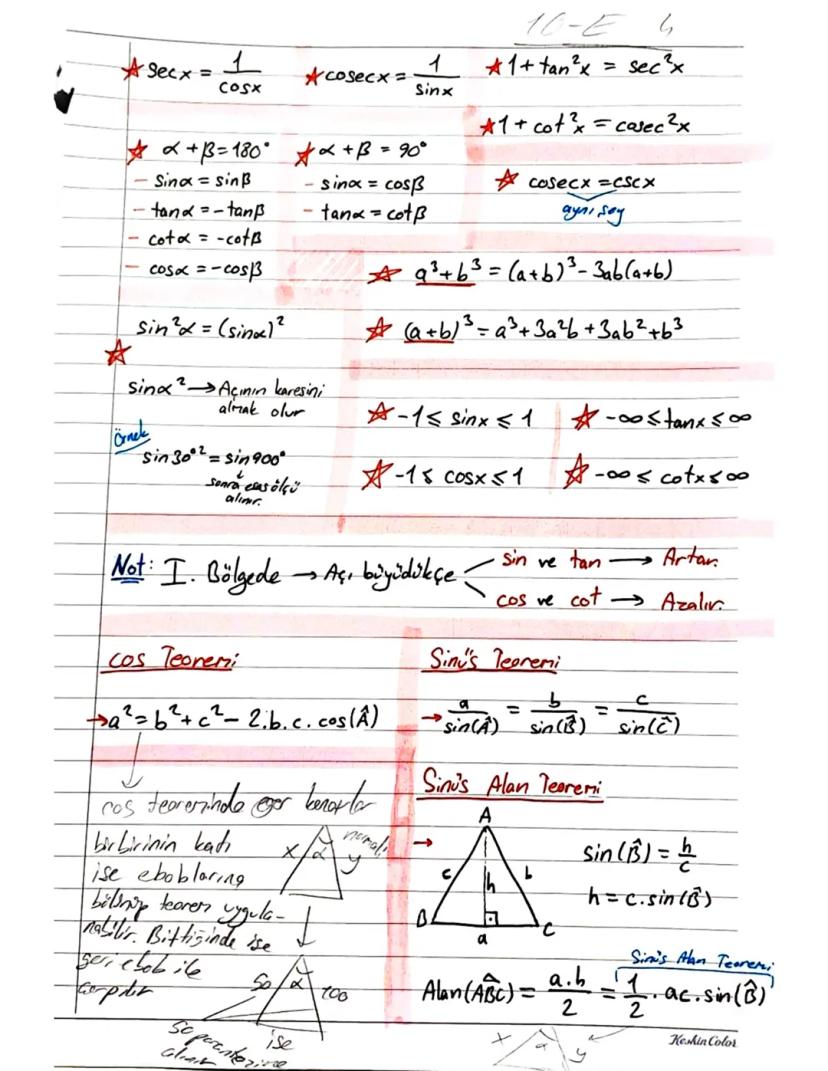 10-E 4
☆ secx = 1/cosx ☆ cosecx = 1/sinx ☆ 1 + tan²x = sec²x
☆ 1 + cot²x = cosec²x
☆ α + β = 180° ☆ α + β = 90°
- sinα = sinβ - sinα = cosβ ☆ cosecx = cscx
- tanα = -tanβ - tanα = cotβ aynı şey
- cotα = -cotβ
- cosα = -cosβ ☆ a³ + b³ = (a+b)³ - 3ab(a+b)
sin²α = (sinα)² ☆ (a+b)³ = a³ + 3a²b + 3ab² + b³
☆
sinα² → Açının karesini
almak olur
☆ -1 ≤ sinx ≤ 1 ☆ -∞ ≤ tanx ≤ ∞
Örnek
sin30°² = sin900°
☆ -1 ≤ cosx ≤ 1 ☆ -∞ ≤ cotx ≤ ∞
↓
sonra esas ölçü
alınır.
Not: I. Bölgede → Açı büyüdükçe
sin ve tan → Artar.
cos ve cot → Azalır.
cos Teoremi
→ a² = b² + c² - 2.b.c.cos(Â)
cos teoreminde eğer kenarlar
birbirinin katı
ise ebob larına
bölünüp teorem uygula-
nabilir. Bittiğinde ise
geri ebob ile
çarpılır
x α y
50 α 100
ise
Sinüs Teoremi
→ a/sin(Â) = b/sin(B̂) = c/sin(Ĉ)
Sinüs Alan Teoremi
→
A
c h b
B a C
sin(B̂) = h/c
h = c.sin(B̂)
Sinüs Alan Teoremi
Alan(ABC) = a.h/2 = 1/2 . ac.sin(B̂)
x α y
KeskinColor